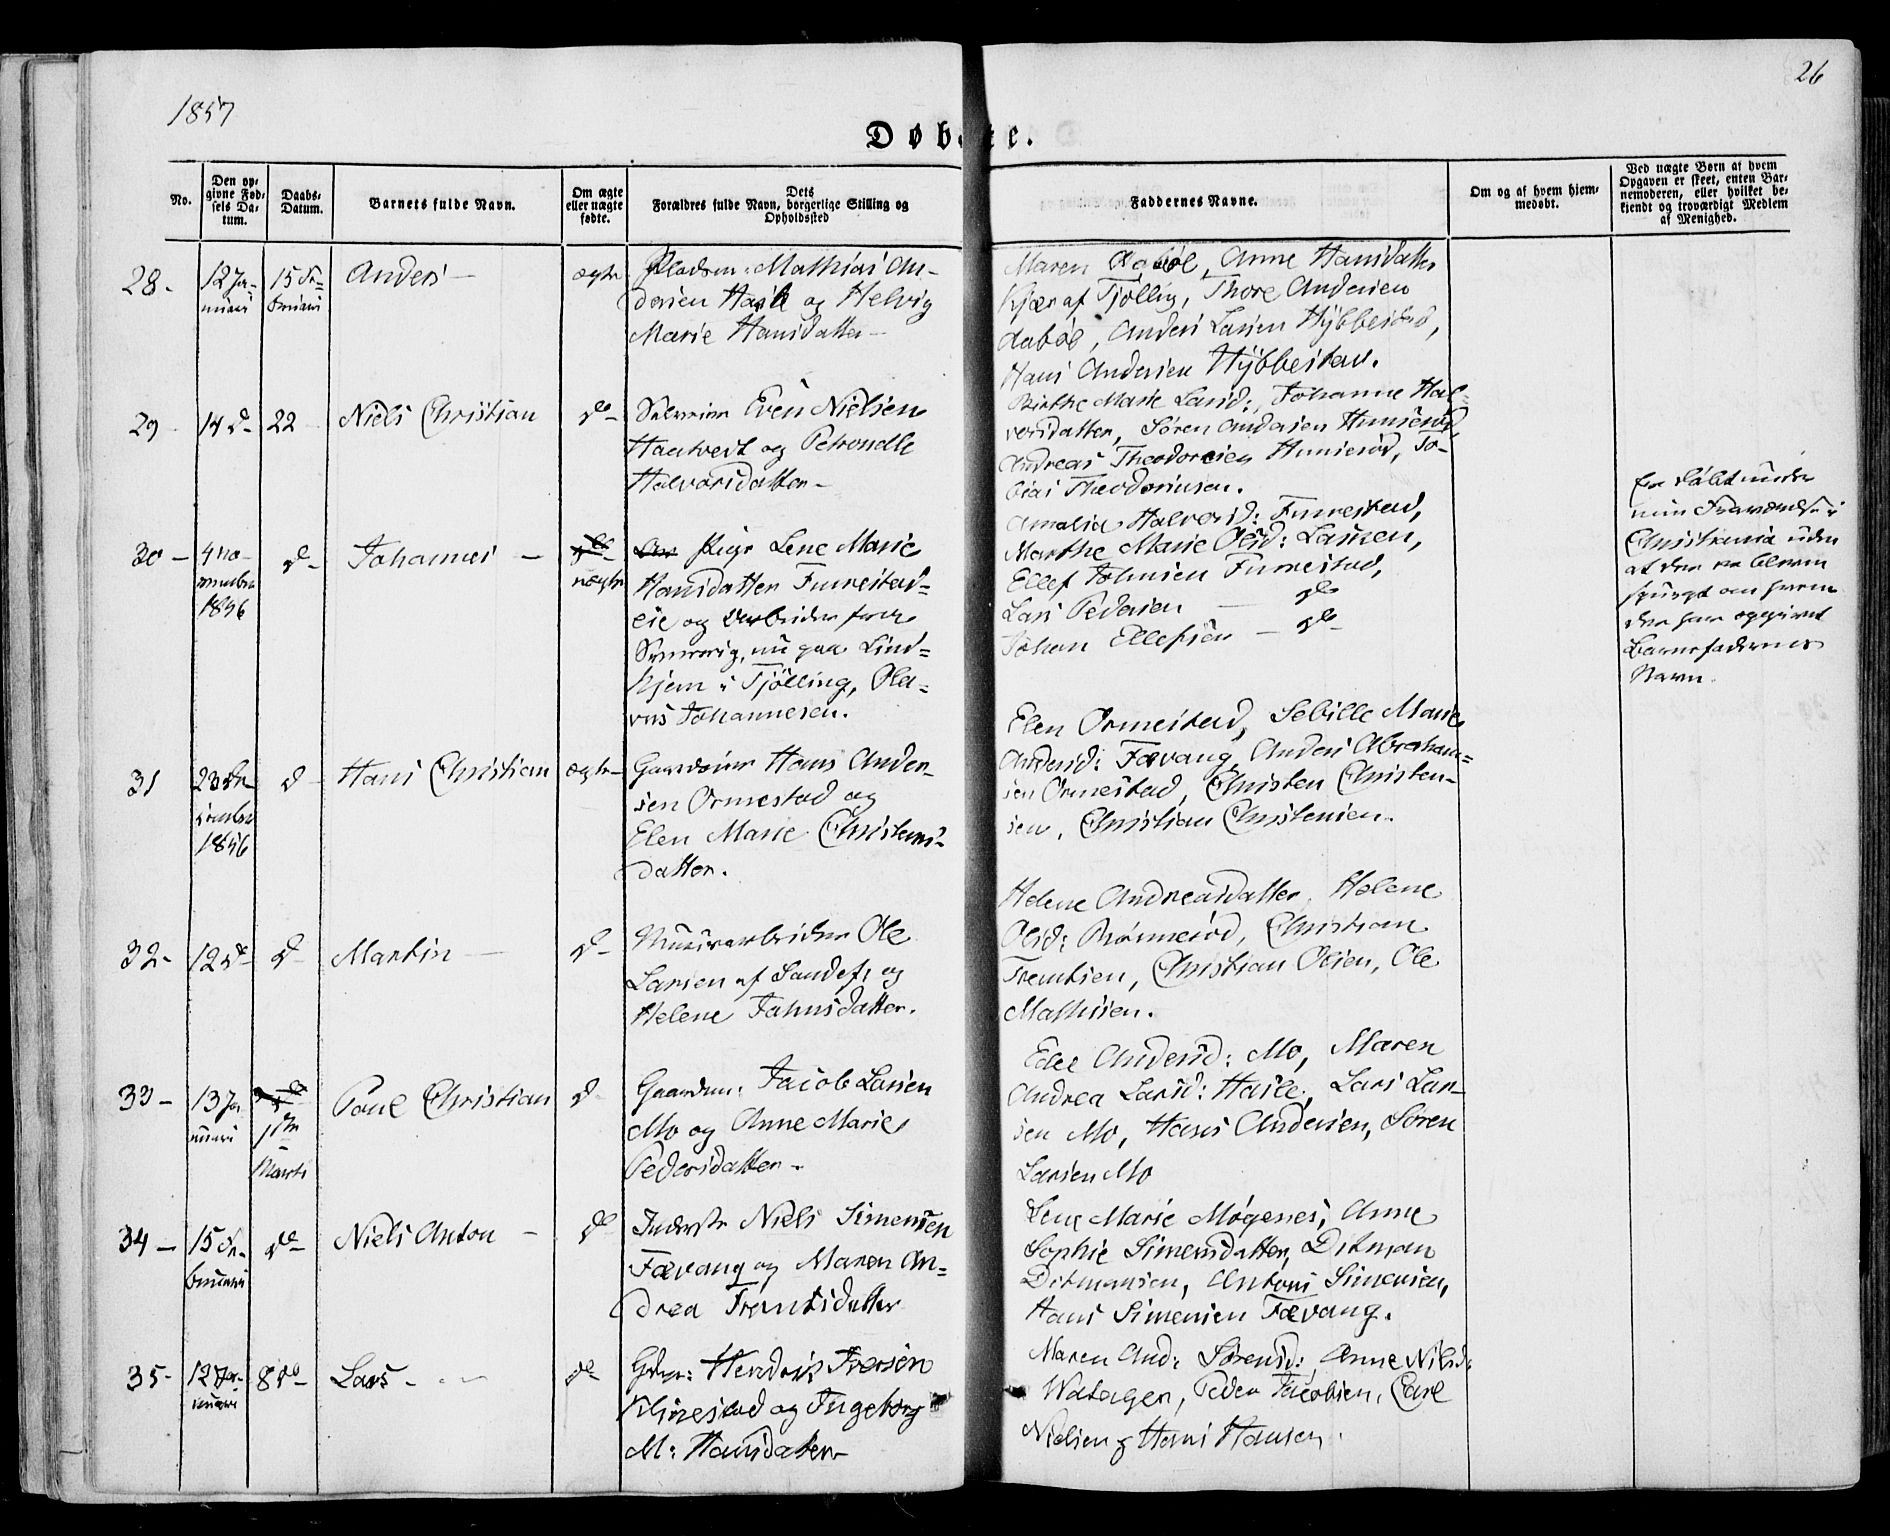 1857
26
Døbte.
No.
Den op-
givne Fød-
sels Da-
tum.
Daabs-
Datum.
Barnets fulde Navn.
Om ægte
eller uægte
fødte.
Dets
Forældres fulde Navn, borgerlige Stilling og
Opholdssted
Faddernes Navne.
Om og af hvem hjem-
medøbt.
Ved uægte Børn af hvem
Opgaven er skeet, enten Bar-
nemoderen, eller hvilket be-
kjendt og troværdigt Medlem
af Menighed.
28-
12 Ja-
nuari
15 Fe-
bruari
Anders -
ægte
Pladsm: Mathias An-
dersen Hasle og Helvig
Marie Hansdatter -
Maren Aabøl, Anne Hansdatter
Kjær af Tjølling, Thore Andersen
Aabøl, Anders Larsen Hybbestad,
Hans Andersen Hybbestad.
29-
14 d-
22
Niels Christian
do-
Selveier Even Nielsen
Haatvedt og Petronelle
Halvorsdatter -
Birthe Marie Larsd:, Johanne Hal-
vorsdatter, Søren Andersen Hunserød,
Andreas Theodorsen Hunserød, To-
bias Theodorsen.
30-
4 No-
vember
1856
d-
Johannes -
uægte
Pige Lene Marie
Hansdatter Furrestad-
eie og Arbeider
nu paa Lind-
hjem i Tjølling, Ola-
vus Johannesen.
Amalia Halvorsd: Furrestad,
Marthe Marie Olsd: Laursen,
Ellef Johnsen Furrestad,
Lars Pedersen - do
Johan Ellefsen - do
Er døbt under
min Fraværelse i
Christiania uden
at der er bleven
spurgt om hvem
der har opgivet
Barnefaderens
Navn.
31
23 De-
cember
1856
d-
Hans Christian
ægte-
Gaardeier Hans Ander-
sen Ormestad og
Elen Marie Christens-
datter.
Elen Ormestad, Sebille Marie
Andersd: Fævang, Anders Abraham-
sen Ormestad, Christen Christen-
sen, Christian Christensen.
32-
12 d-
d-
Martin -
d-
Muurarbeider Ole
Larsen af Sandefj og
Helene Jahnsdatter.
Helene Andreasdatter, Helene
Olsd: Rønnerød, Christian
Frantsen, Christian Olsen, Ole
Mathisen.
33-
13 Ja
nuari
1ste
Marts
Poul Christian
d-
Gaardm: Jacob Larsen
Mo og Anne Marie
Pedersdatter -
Edel Andersd: Mo, Maren
Andrea Larsd: Hasle, Lars Lar-
sen Mo, Hans Andersen, Søren
Larsen Mo
34-
15 Fe-
bruari
do-
Niels Anton -
do
Inderste Niels Simensen
Fævang og Maren An-
drea Frantsdatter
Lene Marie Mogenes, Anne
Sophie Simensdatter, Ditman
Ditmansen, Antoni Simensen,
Hans Simensen Fævang.
35-
12 Ja-
nuari
8 do-
Lars -
do
Gdm: Hendrik Iversen
Klinestad og Ingeborg
M: Hansdatter
Maren And: Sørensd:, Anne Nilsd:
Watager, Peder Jacobsen, Carl
Nielsen og Hans Hansen.